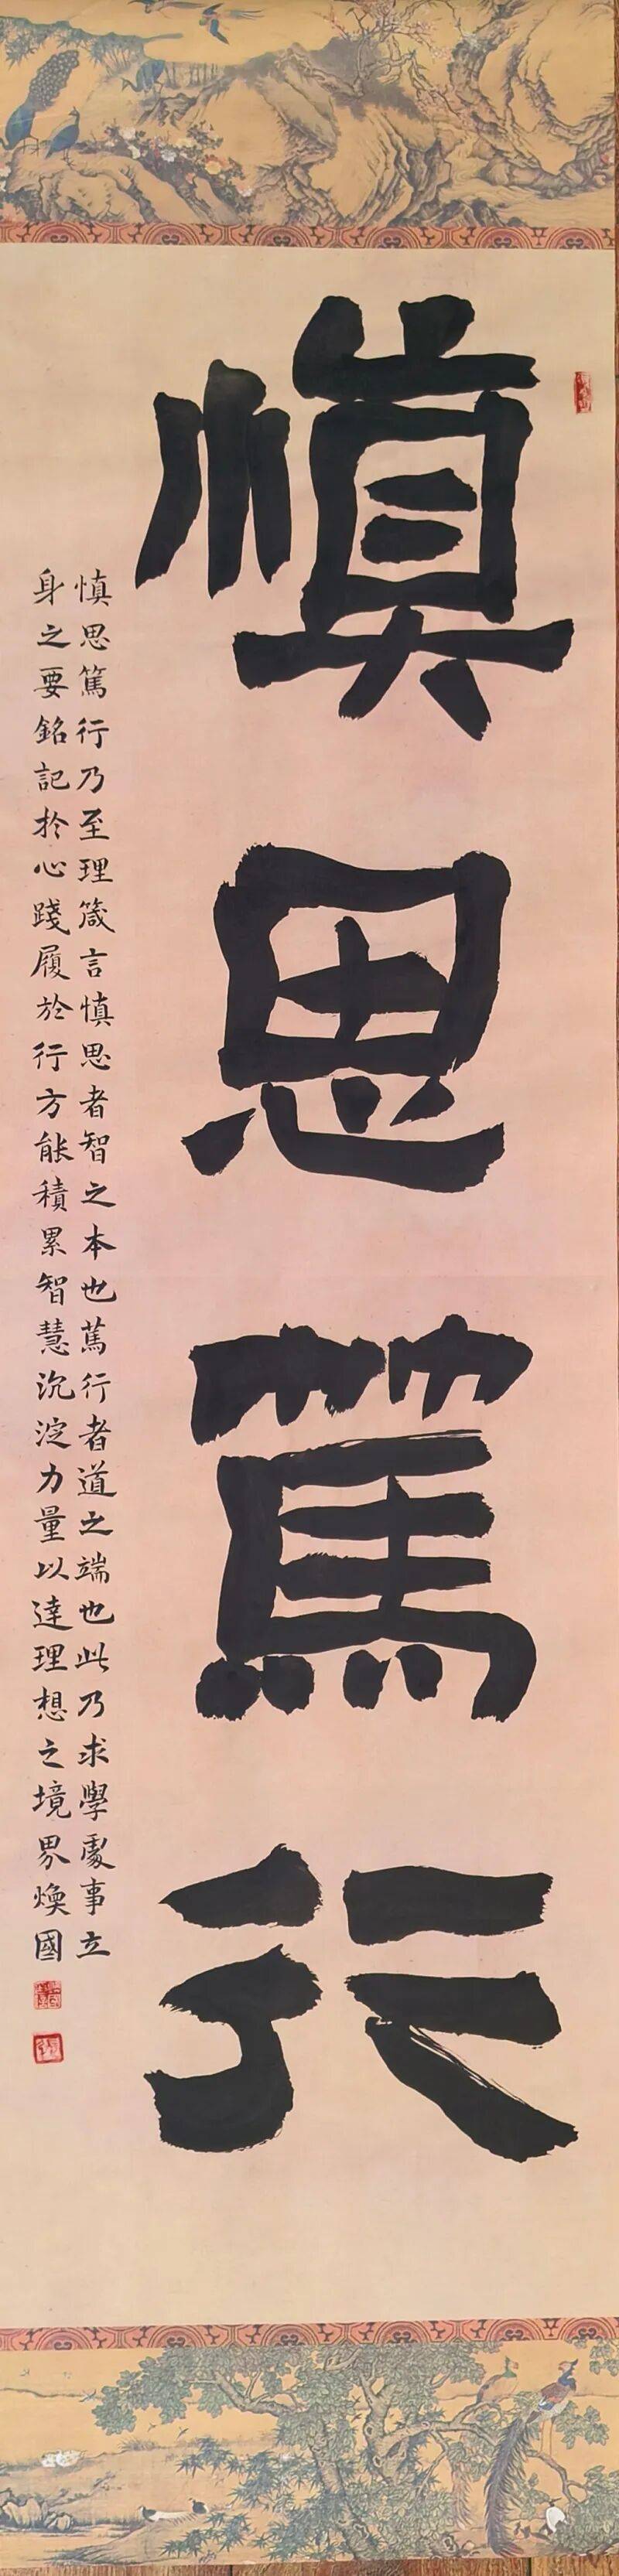 慎思篤行
慎思篤行乃至理箴言慎思者智之本也篤行者道之端也此乃求學處事立
身之要銘記於心踐履於行方能積累智慧沉淀力量以達理想之境界煥國